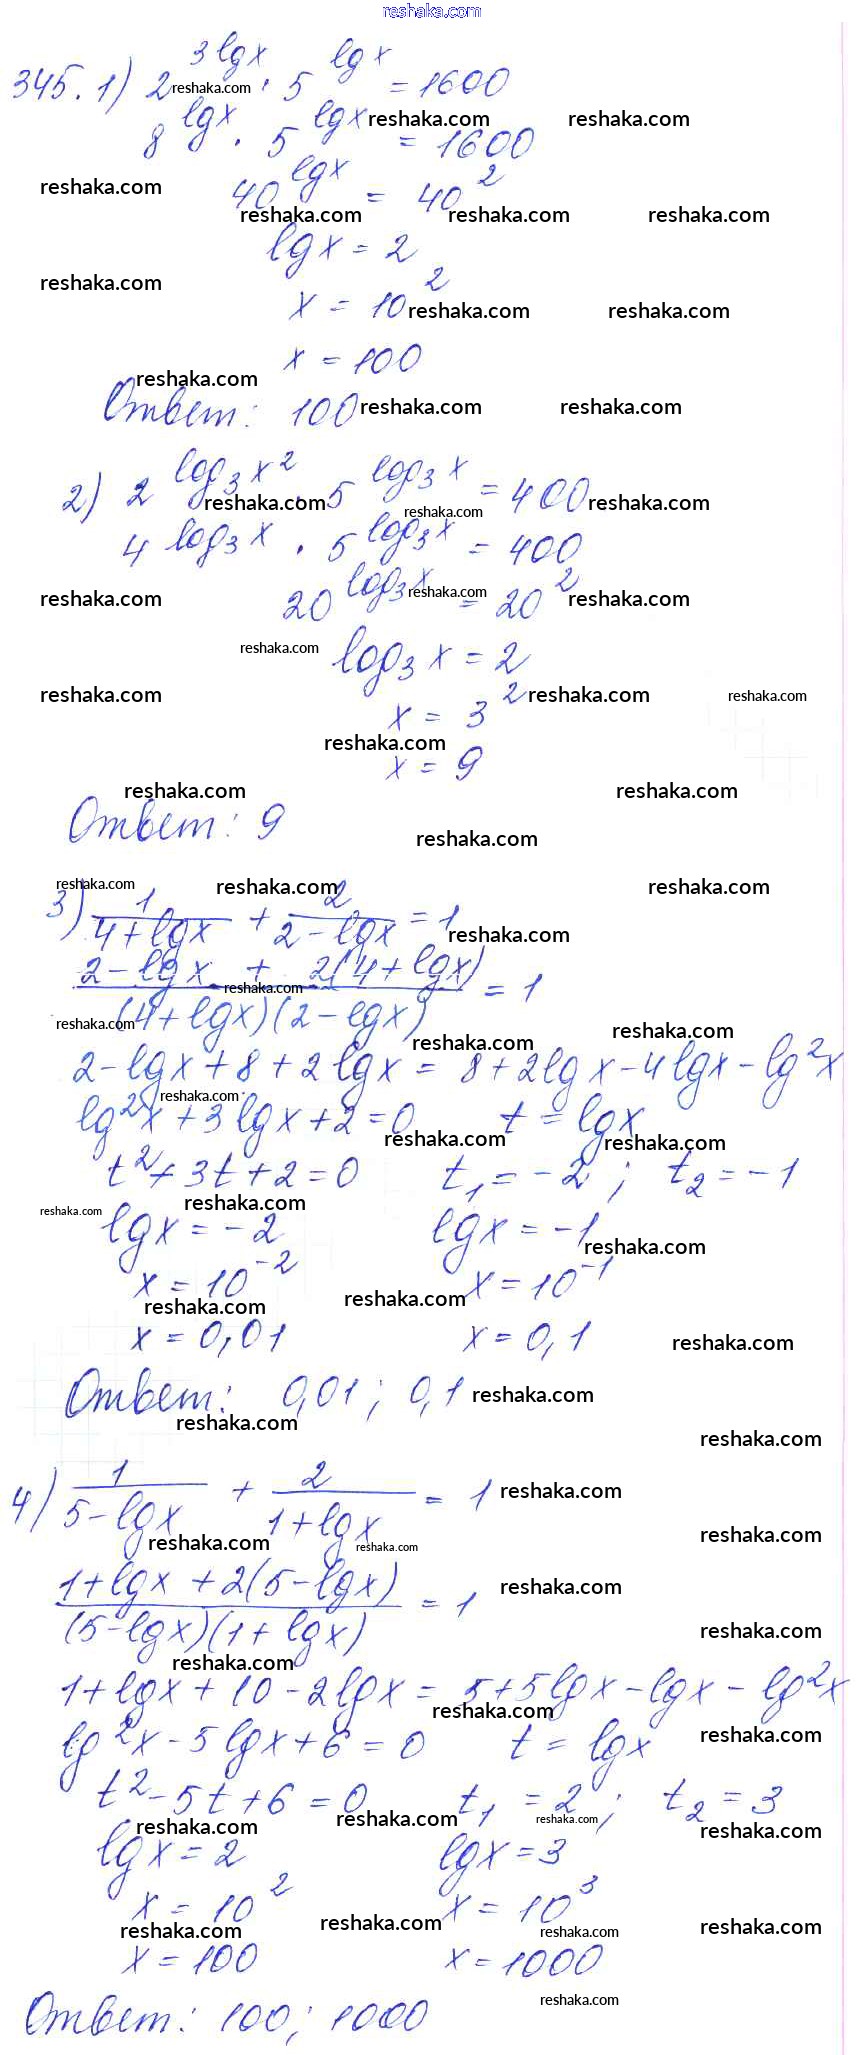 reshaka.com
345. 1) 2^{3 lg x} · 5^{lg x} = 1600
reshaka.com
8^{lg x} · 5^{lg x} = 1600
reshaka.com reshaka.com
40^{lg x} = 40^2
reshaka.com
reshaka.com reshaka.com reshaka.com
lg x = 2
reshaka.com
x = 10^2
reshaka.com reshaka.com
x = 100
reshaka.com
Ответ: 100
reshaka.com reshaka.com
2) 2^{log_3 x^2} · 5^{log_3 x} = 400
reshaka.com reshaka.com reshaka.com
4^{log_3 x} · 5^{log_3 x} = 400
20^{log_3 x} = 20^2
reshaka.com reshaka.com reshaka.com
log_3 x = 2
reshaka.com
x = 3^2
reshaka.com reshaka.com reshaka.com
x = 9
reshaka.com
reshaka.com reshaka.com
Ответ: 9
reshaka.com
3) 1/(4+lg x) + 2/(2-lg x) = 1
reshaka.com reshaka.com reshaka.com
reshaka.com
(2-lg x + 2(4+lg x))/((4+lg x)(2-lg x)) = 1
reshaka.com
reshaka.com reshaka.com
2-lg x+8+2lg x = 8+2lg x-4lg x-lg^2 x
reshaka.com
lg^2 x+3lg x+2=0 t=lg x
reshaka.com
reshaka.com reshaka.com
t^2+3t+2=0 t_1=-2; t_2=-1
reshaka.com reshaka.com
lg x=-2 lg x=-1
reshaka.com
x=10^{-2} x=10^{-1}
reshaka.com reshaka.com
x=0,01 x=0,1
reshaka.com
Ответ: 0,01; 0,1
reshaka.com
reshaka.com reshaka.com
4) 1/(5-lg x) + 2/(1+lg x) = 1
reshaka.com
reshaka.com reshaka.com reshaka.com
(1+lg x+2(5-lg x))/((5-lg x)(1+lg x)) = 1
reshaka.com
reshaka.com reshaka.com
1+lg x+10-2lg x = 5+5lg x-lg x-lg^2 x
reshaka.com
lg^2 x-5lg x+6=0 t=lg x
reshaka.com
t^2-5t+6=0 t_1=2; t_2=3
reshaka.com reshaka.com reshaka.com reshaka.com
lg x=2 lg x=3
x=10^2 x=10^3
reshaka.com reshaka.com reshaka.com reshaka.com
x=100 x=1000
reshaka.com
Ответ: 100; 1000